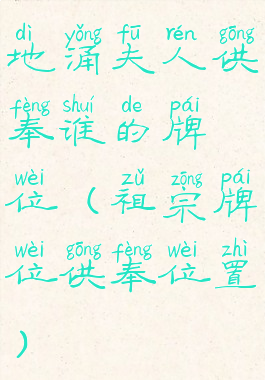 dì yǒng fū rén gōng
地涌夫人供
fèng shuí de pái
奉谁的牌
wèi zǔ zōng pái
位（祖宗牌
wèi gōng fèng wèi zhì
位供奉位置
）